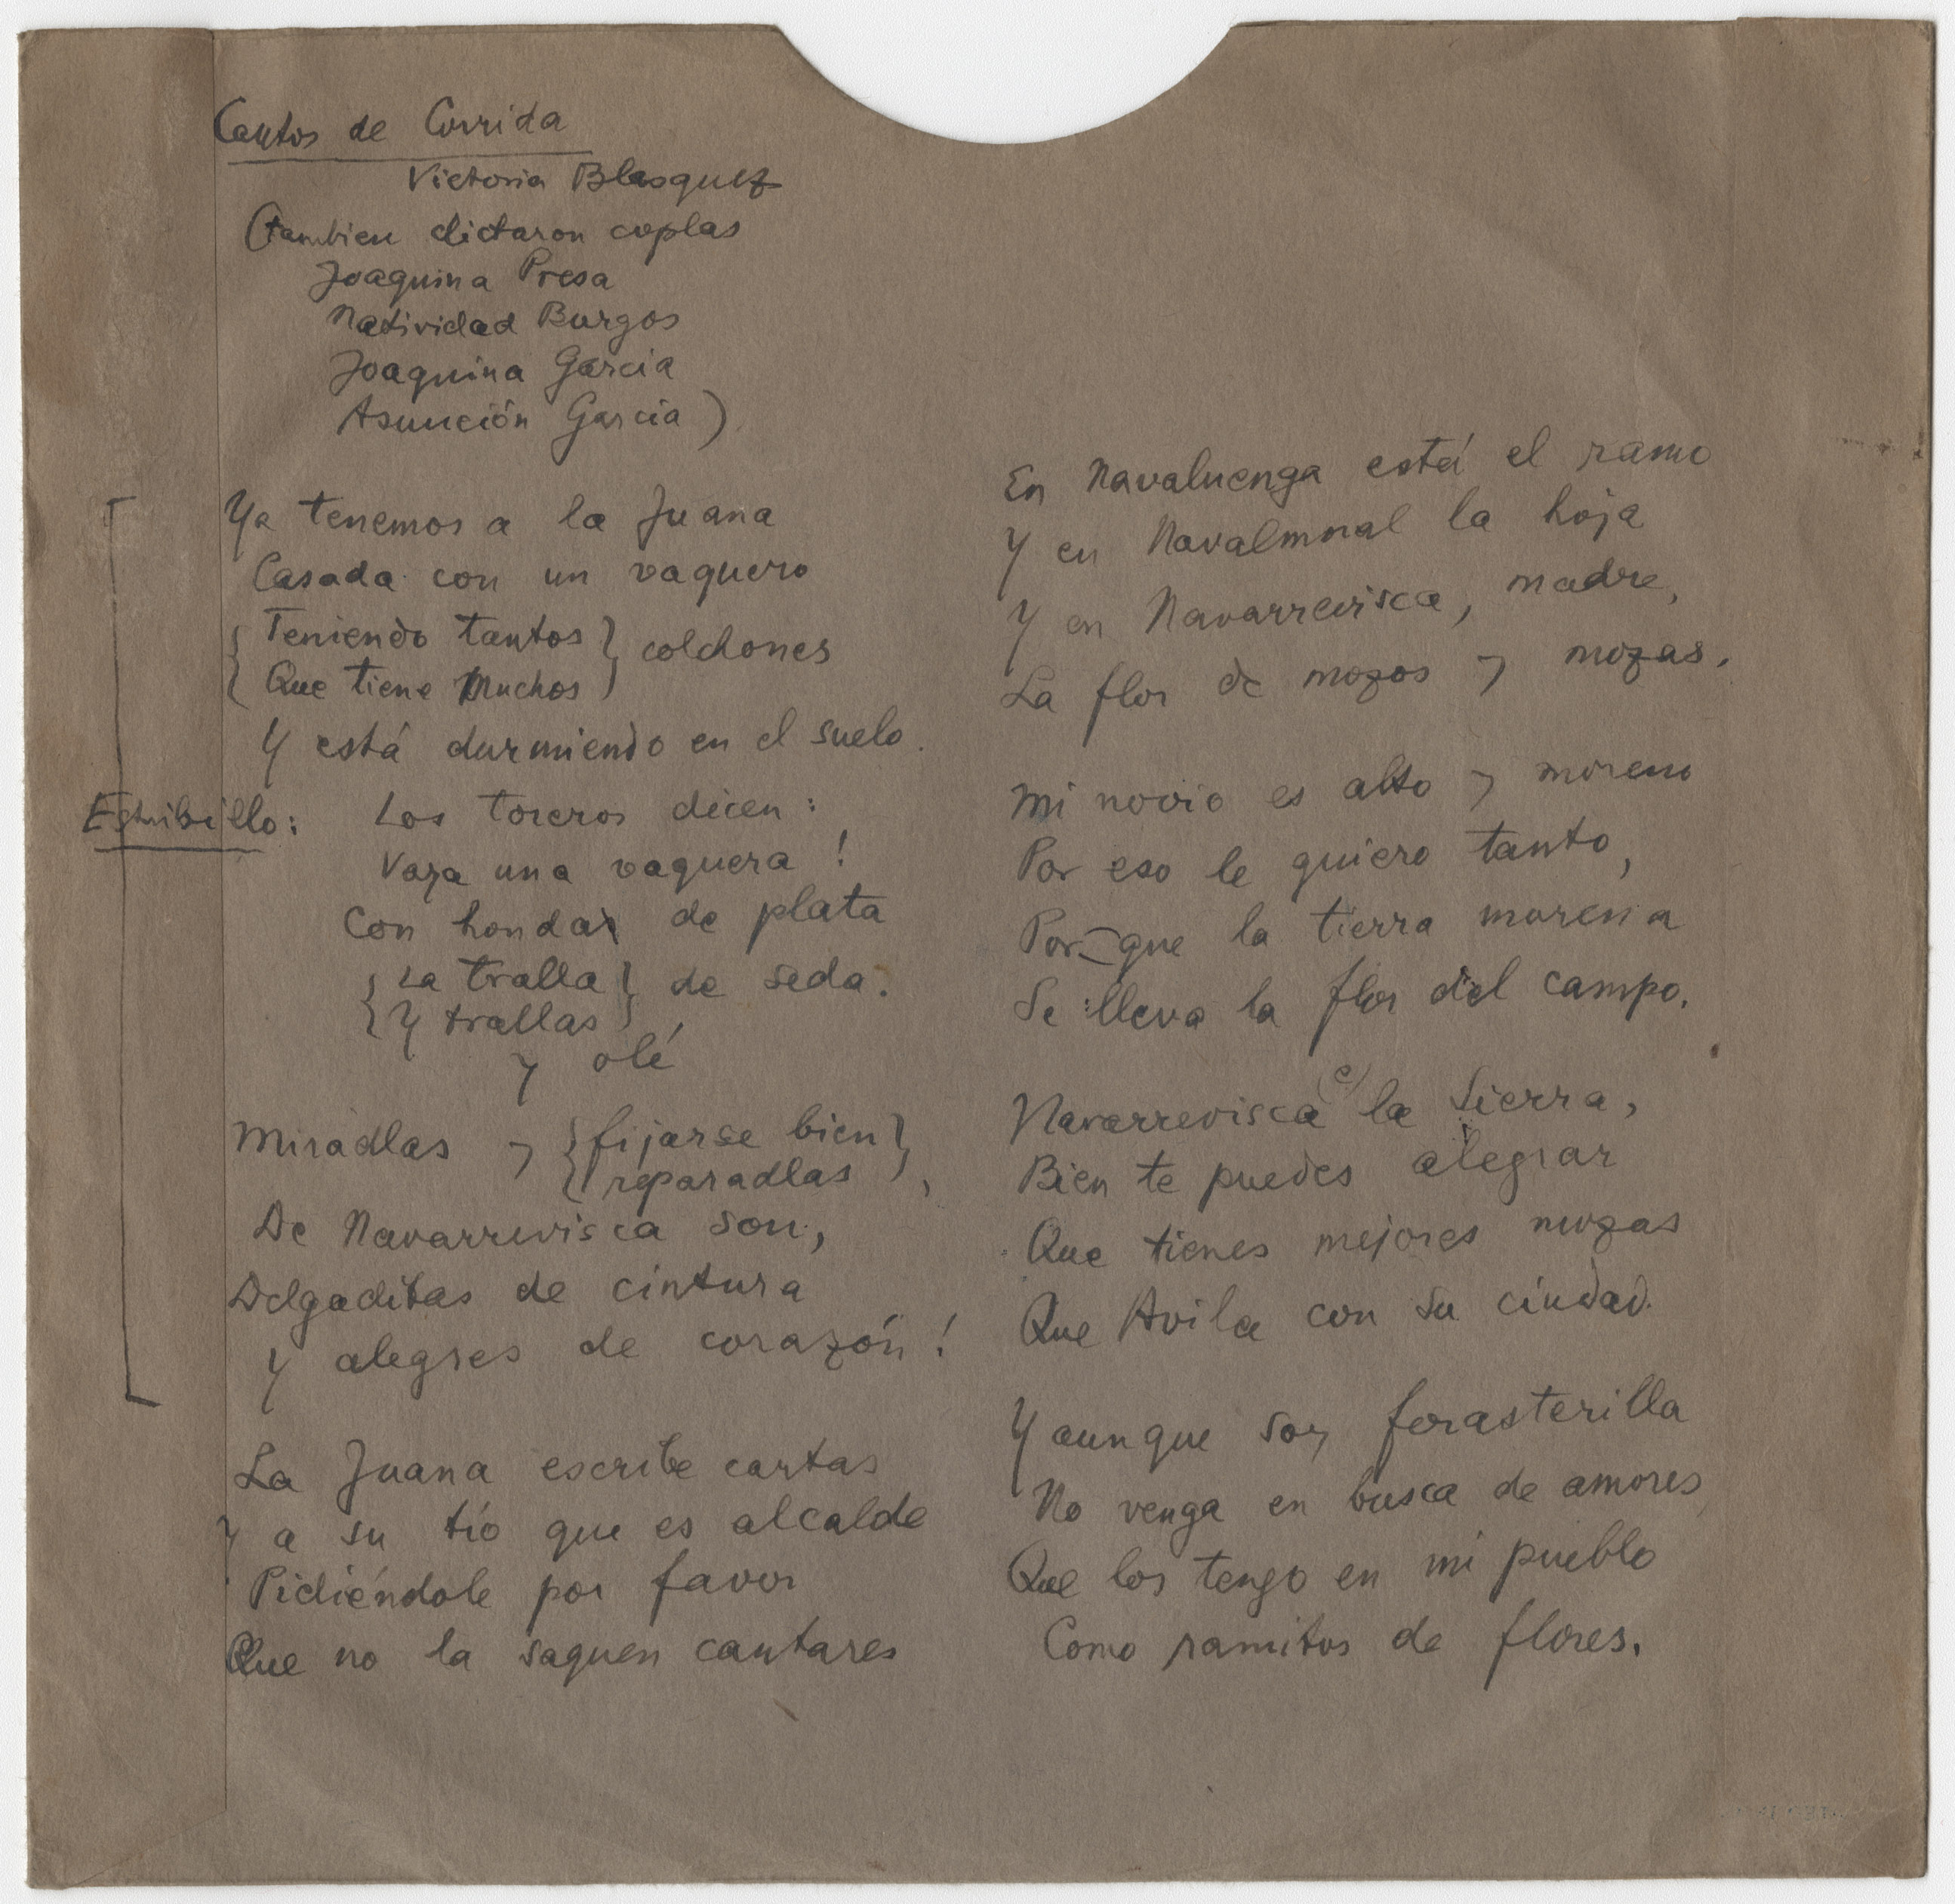 Cantos de Corrida
Victoria Blasquez
(tambien dictaron coplas
Joaquina Presa
Natividad Burgos
Joaquina Garcia
Asunción Garcia)
Ya tenemos a la Juana
Casada con un vaquero
{Teniendo tantos} colchones
{Que tiene Muchos}
Y está durmiendo en el suelo.
Estribillo: Los toreros dicen:
Vaya una vaquera!
Con hondas de plata
{La tralla} de seda.
{Y trallas}
y olé
Miradlas y {fijarse bien},
{reparadlas}
De Navarrevisca son,
Delgaditas de cintura
Y alegres de corazón!
La Juana escribe cartas
Y a su tío que es alcalde
Pidiéndole por favor
Que no la saquen cantares
En Navaluenga está el ramo
Y en Navalmoral la hoja
Y en Navarrevisca, madre,
La flor de mozos y mozas.
Mi novio es alto y moreno
Por eso le quiero tanto,
Porque la tierra morena
Se lleva la flor del campo.
Navarrevisca (e) la Sierra,
Bien te puedes alegrar
Que tienes mejores mozas
Que Avila con su ciudad.
Y aunque soy forasterilla
No venga en busca de amores
Que los tengo en mi pueblo
Como ramitos de flores.